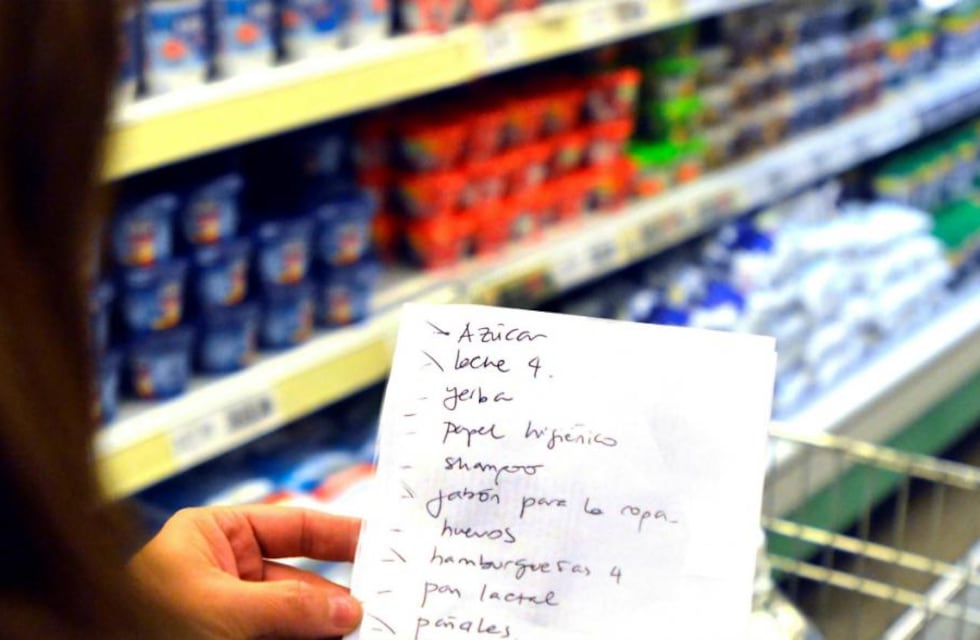 Azúcar
leche 4.
yerba
papel higiénico
shampoo
jabón para la ropa
huevos
hamburguesas 4
pan lactal
pañales